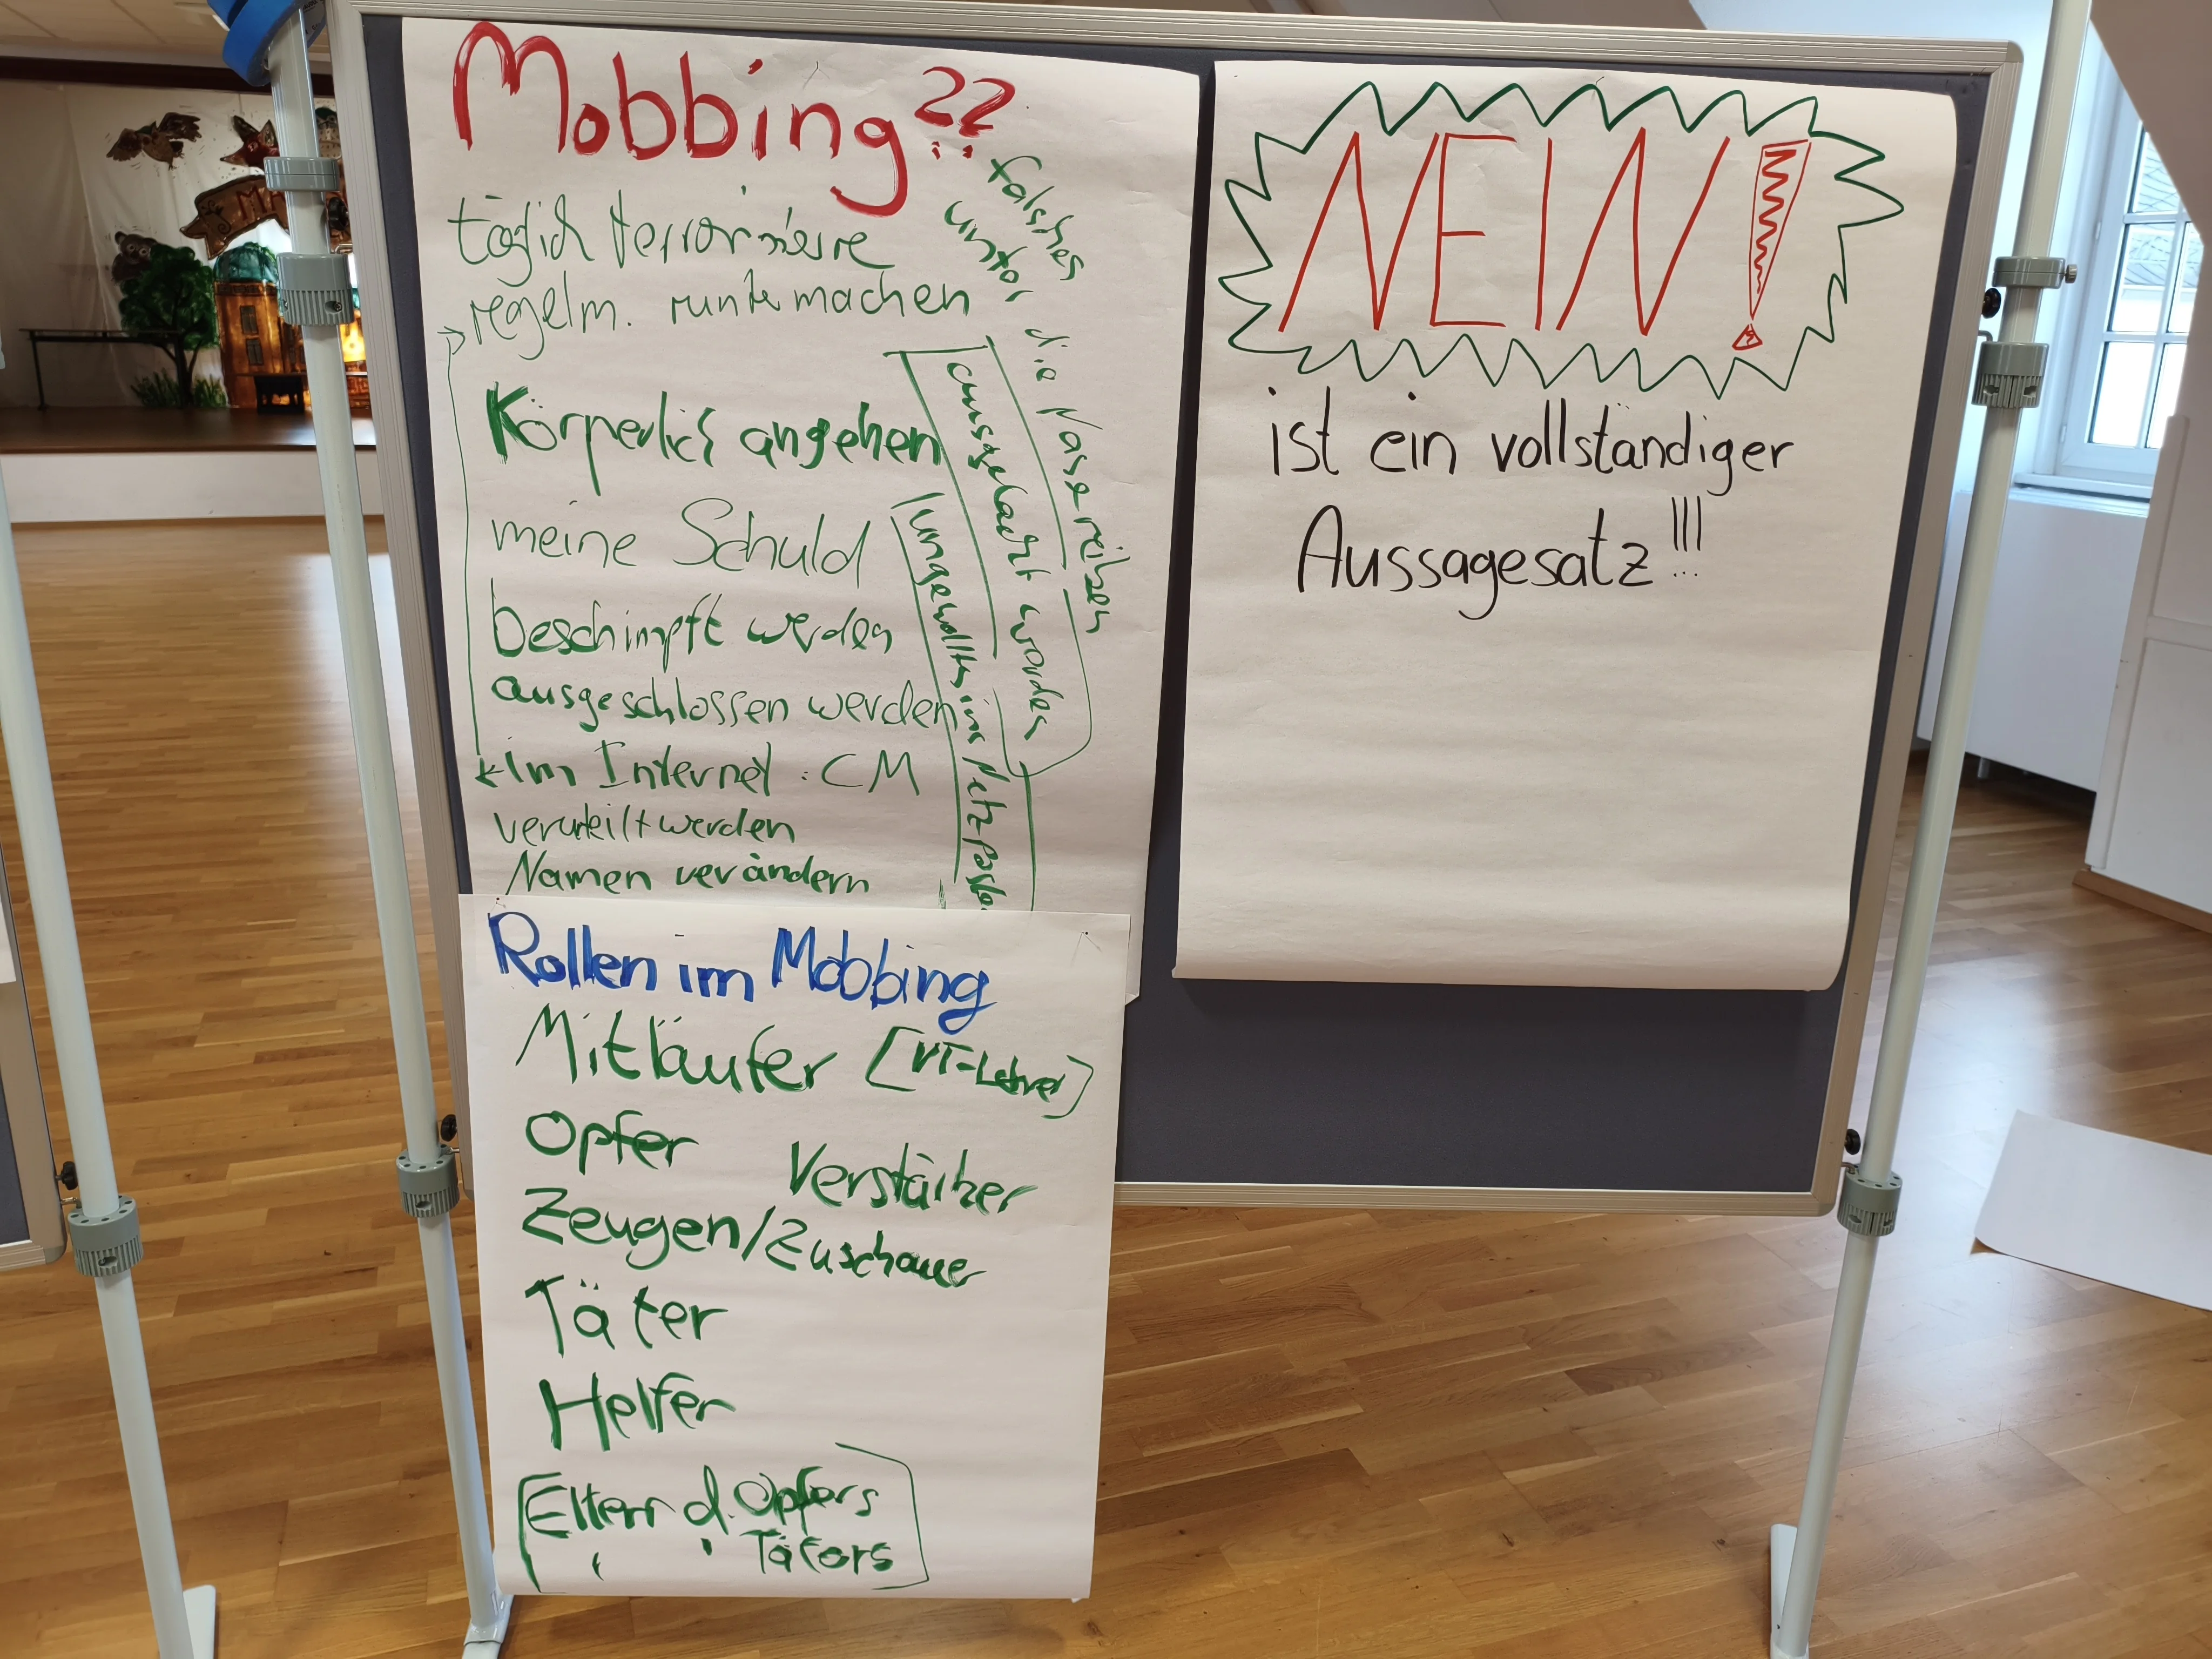 Mobbing??
täglich terrorisiere
regelm. runtermachen
Körperlich angehen
meine Schuld
beschimpft werden
ausgeschlossen werden
Im Internet: CM
verurteilt werden
Namen verändern
falsches
unter die Nase reiben
ausgelacht werden
ungewolltes ins Netz
Rollen im Mobbing
Mitläufer [VT-Lehrer]
Opfer
Verstärker
Zeugen/Zuschauer
Täter
Helfer
[Eltern d. Opfers
" " Täters]
NEIN!
ist ein vollständiger
Aussagesatz!!!